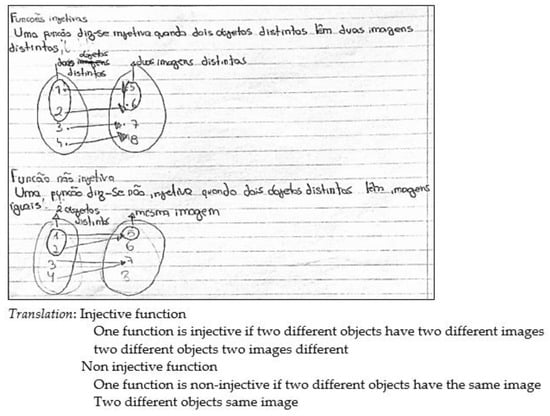 Funcões injetivas
Uma função diz-se injetiva quando dois objetos distintos têm duas imagens
distintos,
dois imagens objetos distintos
duas imagens distintas
1 5
2 6
3 7
4 8
Função não injetiva
Uma função diz-se não injetiva quando dois objetos distintos têm imagens
iguais.
2 objetos distintos
mesma imagem
1 5
2 6
3 7
4 3
Translation: Injective function
One function is injective if two different objects have two different images
two different objects two images different
Non injective function
One function is non-injective if two different objects have the same image
Two different objects same image